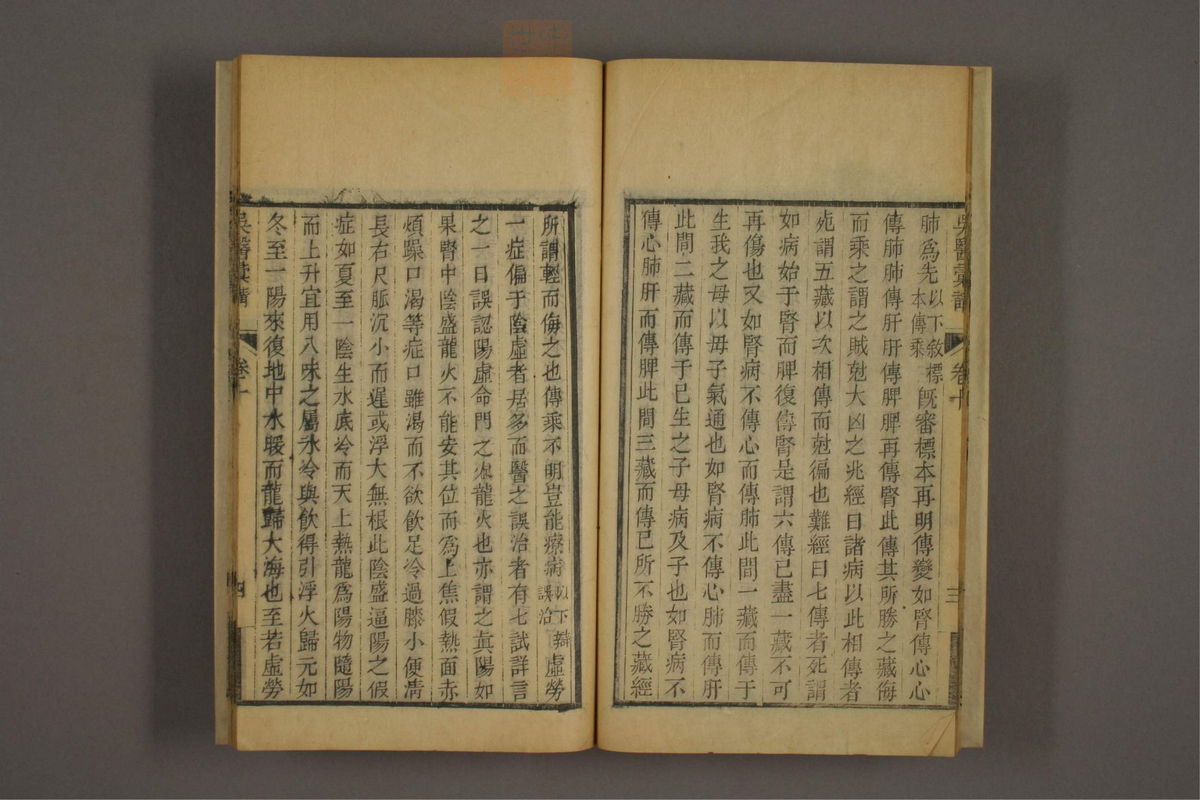 吳醫彙講 卷十 三
肺爲先以下敘標本傳乘旣審標本再明傳變如腎傳心心
傳肺肺傳肝肝傳脾脾再傳腎此傳其所勝之藏侮
而乘之謂之賊尅大凶之兆經曰諸病以此相傳者
死謂五藏以次相傳而尅徧也難經曰七傳者死謂
如病始于腎而脾復傳腎是謂六傳已盡一藏不可
再傷也又如腎病不傳心而傳肺此間一藏而傳于
生我之母以母子氣通也如腎病不傳心肺而傳肝
此間二藏而傳于已生之子母病及子也如腎病不
傳心肺肝而傳脾此間三藏而傳已所不勝之藏經
所謂輕而侮之也傳乘不明豈能療病以下辯誤治虛勞
一症偏于陰虛者居多而醫之誤治者有七試詳言
之一曰誤認陽虛命門之火龍火也亦謂之眞陽如
果腎中陰盛龍火不能安其位而爲上焦假熱面赤
煩躁口渴等症口雖渴而不欲飮足冷過膝小便淸
長右尺脈沉小而遲或浮大無根此陰盛逼陽之假
症如夏至一陰生水底冷而天上熱龍爲陽物隨陽
而上升宜用八味之屬氷冷與飮得引浮火歸元如
冬至一陽來復地中水暖而龍歸大海也至若虛勞
吳醫彙講 卷十 四